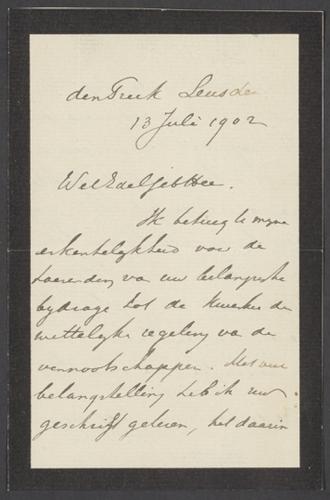 den Treek Leusden
13 Juli 1902
WelEdelGeb Heer.
Ik betuig U mijne
erkentelijkheid voor de
toezending van uw belangrijke
bijdrage tot de kwestie der
wettelijke regeling van de
vennootschappen. Met veel
belangstelling heb ik uw
geschrift gelezen, het daarin